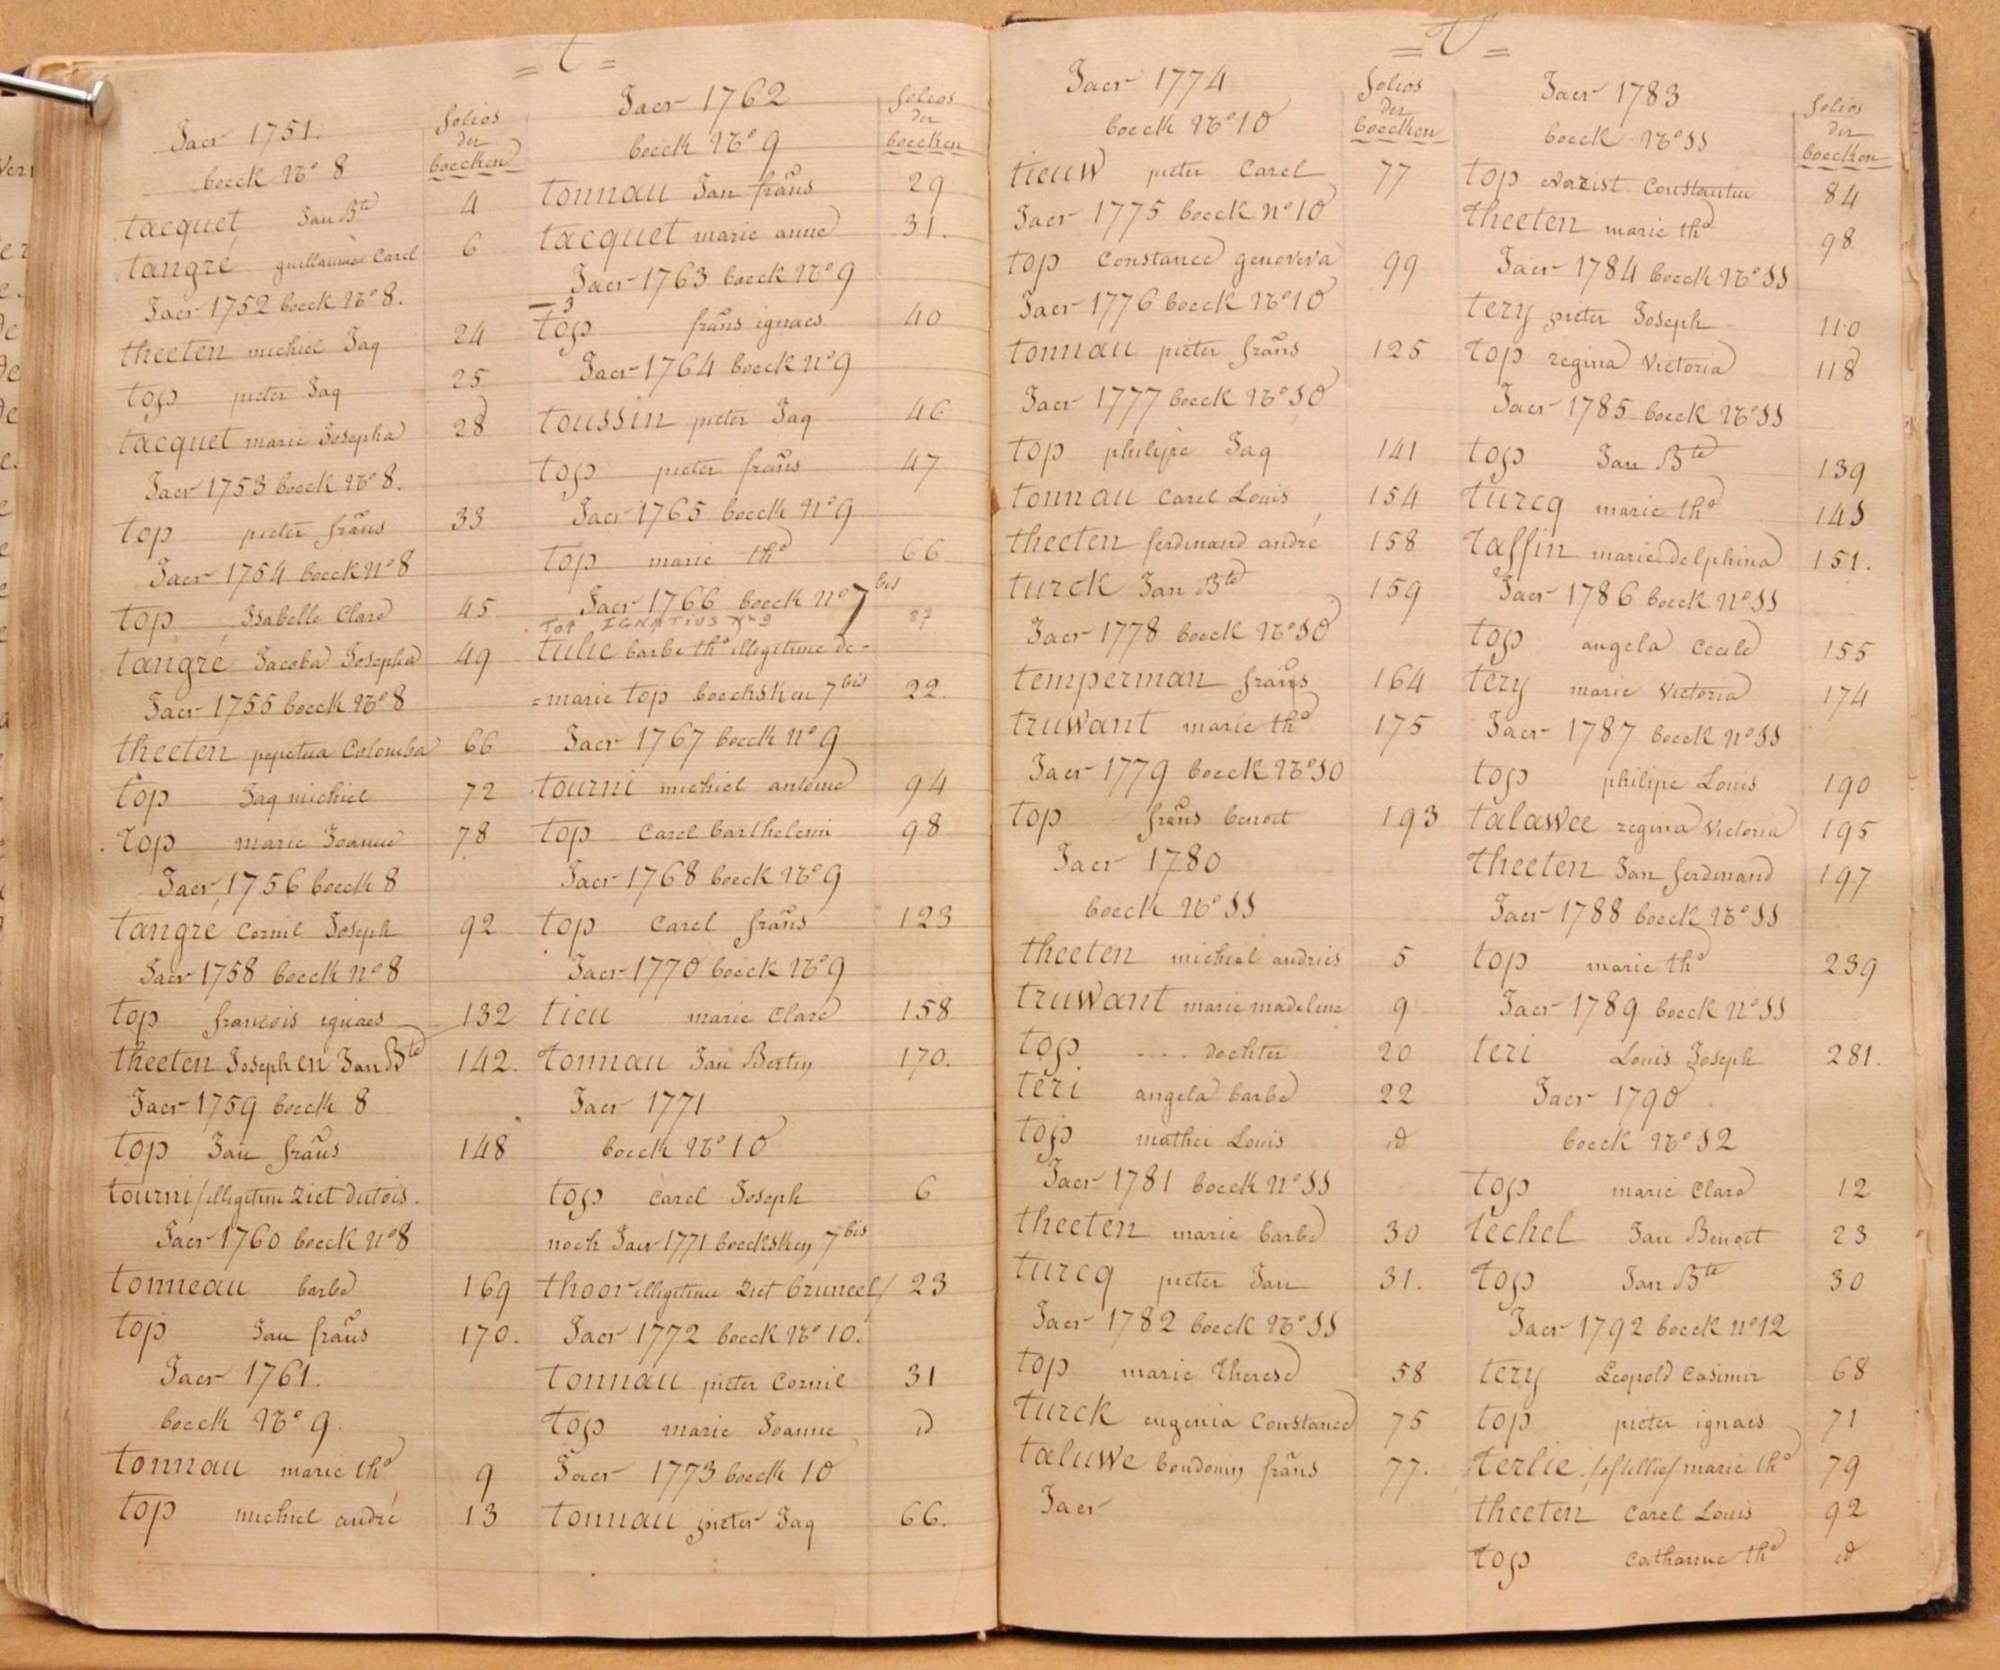 = t =
Jaer 1751.
boeck No 8
folios
der
boecken
tacquet Jan Bte 4
tangré guillaume Carel 6
Jaer 1752 boeck No 8.
theeten michiel Jaq 24
top pieter Jaq 25
tacquet marie Josepha 28
Jaer 1753 boeck No 8.
top pieter frans 33
Jaer 1754 boeck No 8
top Isabelle Clare 45
tangré Jacoba Josepha 49
Jaer 1755 boeck No 8
theeten pepetua Colomba 66
top Jaq michiel 72
top marie Joanne 78
Jaer 1756 boeck 8
tangré Cornil Joseph 92
Jaer 1758 boeck No 8
top francois ignaes 132
theeten Joseph en Jan Bte 142.
Jaer 1759 boeck 8
top Jan frans 148
tourni / illegitime ziet dutois.
Jaer 1760 boeck No 8
tonneau barbe 169
top Jan frans 170.
Jaer 1761.
boeck No 9.
tonnau marie the 9
top michiel andré 13
Jaer 1762
boeck No 9
folios
der
boecken
tonnau Jan frans 29
tacquet marie anne 31.
Jaer 1763 boeck No 9
3
top frans ignaes 40
Jaer 1764 boeck No 9
toussin pieter Jaq 46
top pieter frans 47
Jaer 1765 boeck No 9
top marie the 66
Jaer 1766 boeck No 7 bis
TOP IGNATIUS No 9 87
tulie barbe the illegitime de-
= marie top boecksken 7 bis 22.
Jaer 1767 boeck No 9
tourni michiel antoine 94
top Carel barthelemi 98
Jaer 1768 boeck No 9
top Carel frans 123
Jaer 1770 boeck No 9
tieu marie Clare 158
tonnau Jan Bertin 170.
Jaer 1771
boeck No 10
top Carel Joseph 6
noch Jaer 1771 boecksken 7 bis
thoor illegitime ziet bruneel / 23
Jaer 1772 boeck No 10.
tonnau pieter Cornil 31
top marie Joanne id
Jaer 1773 boeck 10
tonnau pieter Jaq 66.
= T =
Jaer 1774
boeck No 10
folios
der
boecken
tieuw pieter Carel 77
Jaer 1775 boeck No 10
top Constance genoveva 99
Jaer 1776 boeck No 10
tonnau pieter frans 125
Jaer 1777 boeck No 10
top philipe Jaq 141
tonnau Carel Louis 154
theeten ferdinand andré 158
turck Jan Bte 159
Jaer 1778 boeck No 10
temperman frans 164
truwant marie the 175
Jaer 1779 boeck No 10
top frans benoit 193
Jaer 1780
boeck No 11
theeten michiel andries 5
truwant marie madelene 9
top .... dochter 20
teri angela barbe 22
top mathei Louis id
Jaer 1781 boeck No 11
theeten marie barbe 30
turcq pieter Jan 31.
Jaer 1782 boeck No 11
top marie Therese 58
turck eugenia Constance 75
taluwe boudouin frans 77.
Jaer
Jaer 1783
boeck No 11
folios
der
boecken
top evarist Constantin 84
theeten marie the 98
Jaer 1784 boeck No 11
tery pieter Joseph 110
top regina Victoria 118
Jaer 1785 boeck No 11
top Jan Bte 139
turcq marie the 141
taffin marie delphina 151.
Jaer 1786 boeck No 11
top angela Cecile 155
tery marie Victoria 174
Jaer 1787 boeck No 11
top philipe Louis 190
talawee regina Victoria 195
theeten Jan ferdinand 197
Jaer 1788 boeck No 11
top marie the 239
Jaer 1789 boeck No 11
teri Louis Joseph 281.
Jaer 1790
boeck No 12
top marie Clare 12
techel Jan Benoit 23
top Jan Bte 30
Jaer 1792 boeck No 12
tery Leopold Casimir 68
top pieter ignaes 71
terlie marie the 79
theeten Carel Louis 92
top Catharine the id